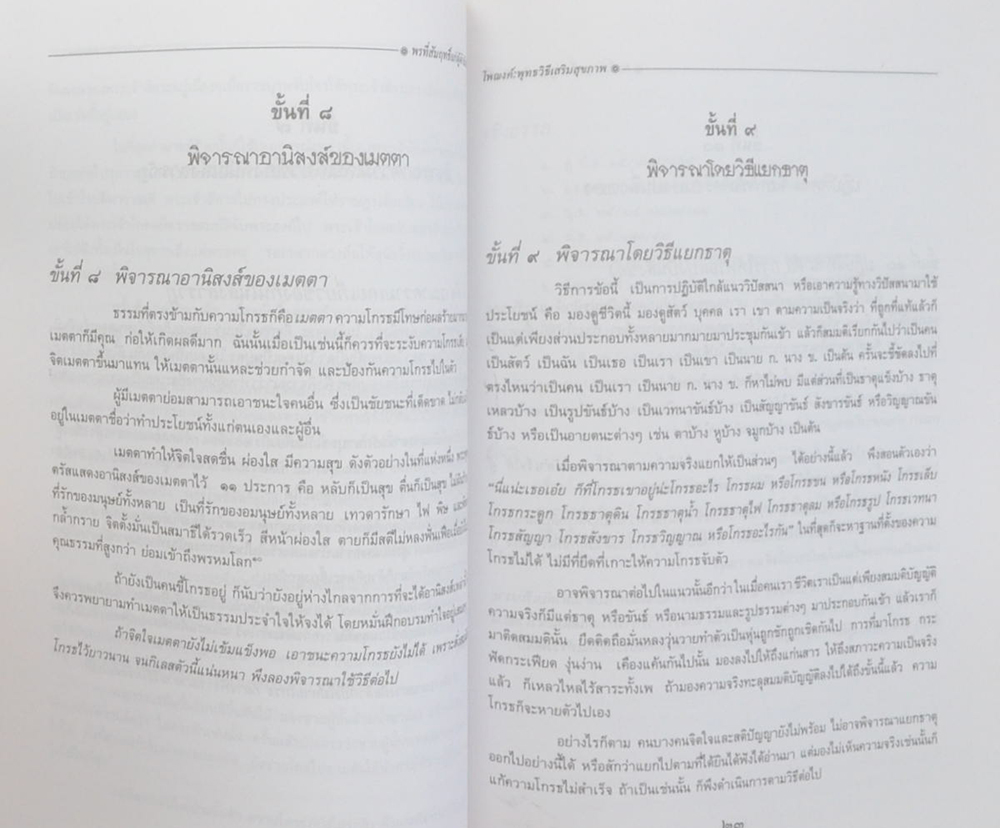 พรที่สัมฤทธิ์แก่ผู้
ขั้นที่ ๘
พิจารณาอานิสงส์ของเมตตา
ขั้นที่ ๘ พิจารณาอานิสงส์ของเมตตา
ธรรมที่ตรงข้ามกับความโกรธก็คือเมตตา ความโกรธมีโทษก่อผลร้าย
เมตตาก็มีคุณ ก่อให้เกิดผลดีมาก ฉันนั้นเมื่อเป็นเช่นนี้ก็ควรที่จะระงับความโกรธ
จิตเมตตาขึ้นมาแทน ให้เมตตานั้นแหละช่วยกำจัด และป้องกันความโกรธไปในตัว
ผู้มีเมตตาย่อมสามารถเอาชนะใจคนอื่น ซึ่งเป็นชัยชนะที่เด็ดขาด
อยู่ในเมตตาชื่อว่าทำประโยชน์ทั้งแก่ตนเองและผู้อื่น
เมตตาทำให้จิตใจสดชื่น ผ่องใส มีความสุข ดังตัวอย่างในที่แห่งหนึ่ง
ตรัสแสดงอานิสงส์ของเมตตาไว้ ๑๑ ประการ คือ หลับก็เป็นสุข ตื่นก็เป็นสุข
ที่รักของมนุษย์ทั้งหลาย เป็นที่รักของอมนุษย์ทั้งหลาย เทวดารักษา ไฟ พิษ
กล้ำกราย จิตตั้งมั่นเป็นสมาธิได้รวดเร็ว สีหน้าผ่องใส ตายก็มีสติไม่หลงฟั่นเฟือ
คุณธรรมที่สูงกว่า ย่อมเข้าถึงพรหมโลก
ถ้ายังเป็นคนขี้โกรธอยู่ ก็นับว่ายังอยู่ห่างไกลจากการที่จะได้อานิสงส์
จึงควรพยายามทำเมตตาให้เป็นธรรมประจำใจให้จงได้ โดยหมั่นฝึกอบรมทำใจอยู่
ถ้าจิตใจเมตตายังไม่เข้มแข็งพอ เอาชนะความโกรธยังไม่ได้
โกรธไว้ยาวนาน จนกิเลสตัวนี้แน่นหนา พึงลองพิจารณาใช้วิธีต่อไป
โพชฌงค์:พุทธวิธีเสริมสุขภาพ
ขั้นที่ ๙
พิจารณาโดยวิธีแยกธาตุ
ขั้นที่ ๙ พิจารณาโดยวิธีแยกธาตุ
วิธีการข้อนี้ เป็นการปฏิบัติใกล้แนววิปัสสนา หรือเอาความรู้ทางวิปัสสนามาใช้
ประโยชน์ คือ มองดูชีวิตนี้ มองดูสัตว์ บุคคล เรา เขา ตามความเป็นจริงว่า ที่ถูกที่แท้แล้วก็
เป็นแต่เพียงส่วนประกอบทั้งหลายมากมายมาประชุมกันเข้า แล้วก็สมมติเรียกกันไปว่าเป็นคน
เป็นสัตว์ เป็นฉัน เป็นเธอ เป็นเรา เป็นเขา เป็นนาย ก. นาง ข. เป็นต้น ครั้นจะชี้ชัดลงไปที่
ตรงไหนว่าเป็นคน เป็นเรา เป็นนาย ก. นาง ข. ก็หาไม่พบ มีแต่ส่วนที่เป็นธาตุแข็งบ้าง ธาตุ
เหลวบ้าง เป็นรูปขันธ์บ้าง เป็นเวทนาขันธ์บ้าง เป็นสัญญาขันธ์ สังขารขันธ์ หรือวิญญาณขัน
ธ์บ้าง หรือเป็นอายตนะต่างๆ เช่น ตาบ้าง หูบ้าง จมูกบ้าง เป็นต้น
เมื่อพิจารณาตามความจริงแยกให้เป็นส่วนๆ ได้อย่างนี้แล้ว พึงสอนตัวเองว่า
"นี่แน่ะเธอเอ๋ย ก็ที่โกรธเขาอยู่น่ะโกรธอะไร โกรธผม หรือโกรธขน หรือโกรธหนัง โกรธเล็บ
โกรธกระดูก โกรธธาตุดิน โกรธธาตุน้ำ โกรธธาตุไฟ โกรธธาตุลม หรือโกรธรูป โกรธเวทนา
โกรธสัญญา โกรธสังขาร โกรธวิญญาณ หรือโกรธอะไรกัน" ในที่สุดก็จะหาฐานที่ตั้งของความ
โกรธไม่ได้ ไม่มีที่ยึดที่เกาะให้ความโกรธจับตัว
อาจพิจารณาต่อไปในแนวนั้นอีกว่า ในเมื่อคนเรา ชีวิตเราเป็นแต่เพียงสมมติบัญญัติ
ความจริงก็มีแต่ธาตุ หรือขันธ์ หรือนามธรรมและรูปธรรมต่างๆ มาประกอบกันเข้า แล้วเราก็
มาติดสมมตินั้น ยึดติดถือมั่นหลงวุ่นวายทำตัวเป็นหุ่นถูกชักถูกเชิดกันไป การที่มาโกรธ กระ
ฟัดกระเฟียด งุ่นง่าน เคืองแค้นกันไปนั้น มองลงไปให้ถึงแก่นสาร ให้ถึงสภาวะความเป็นจริง
แล้ว ก็เหลวไหลไร้สาระทั้งเพ ถ้ามองความจริงทะลุสมมติบัญญัติลงไปได้ถึงขั้นนี้แล้ว ความ
โกรธก็จะหายตัวไปเอง
อย่างไรก็ตาม คนบางคนจิตใจและสติปัญญายังไม่พร้อม ไม่อาจพิจารณาแยกธาตุ
ออกไปอย่างนี้ได้ หรือสักว่าแยกไปตามที่ได้ยินได้ฟังได้อ่านมา แต่มองไม่เห็นความจริงเช่นนั้นก็
แก้ความโกรธไม่สำเร็จ ถ้าเป็นเช่นนั้น ก็พึงดำเนินการตามวิธีต่อไป
๒๓